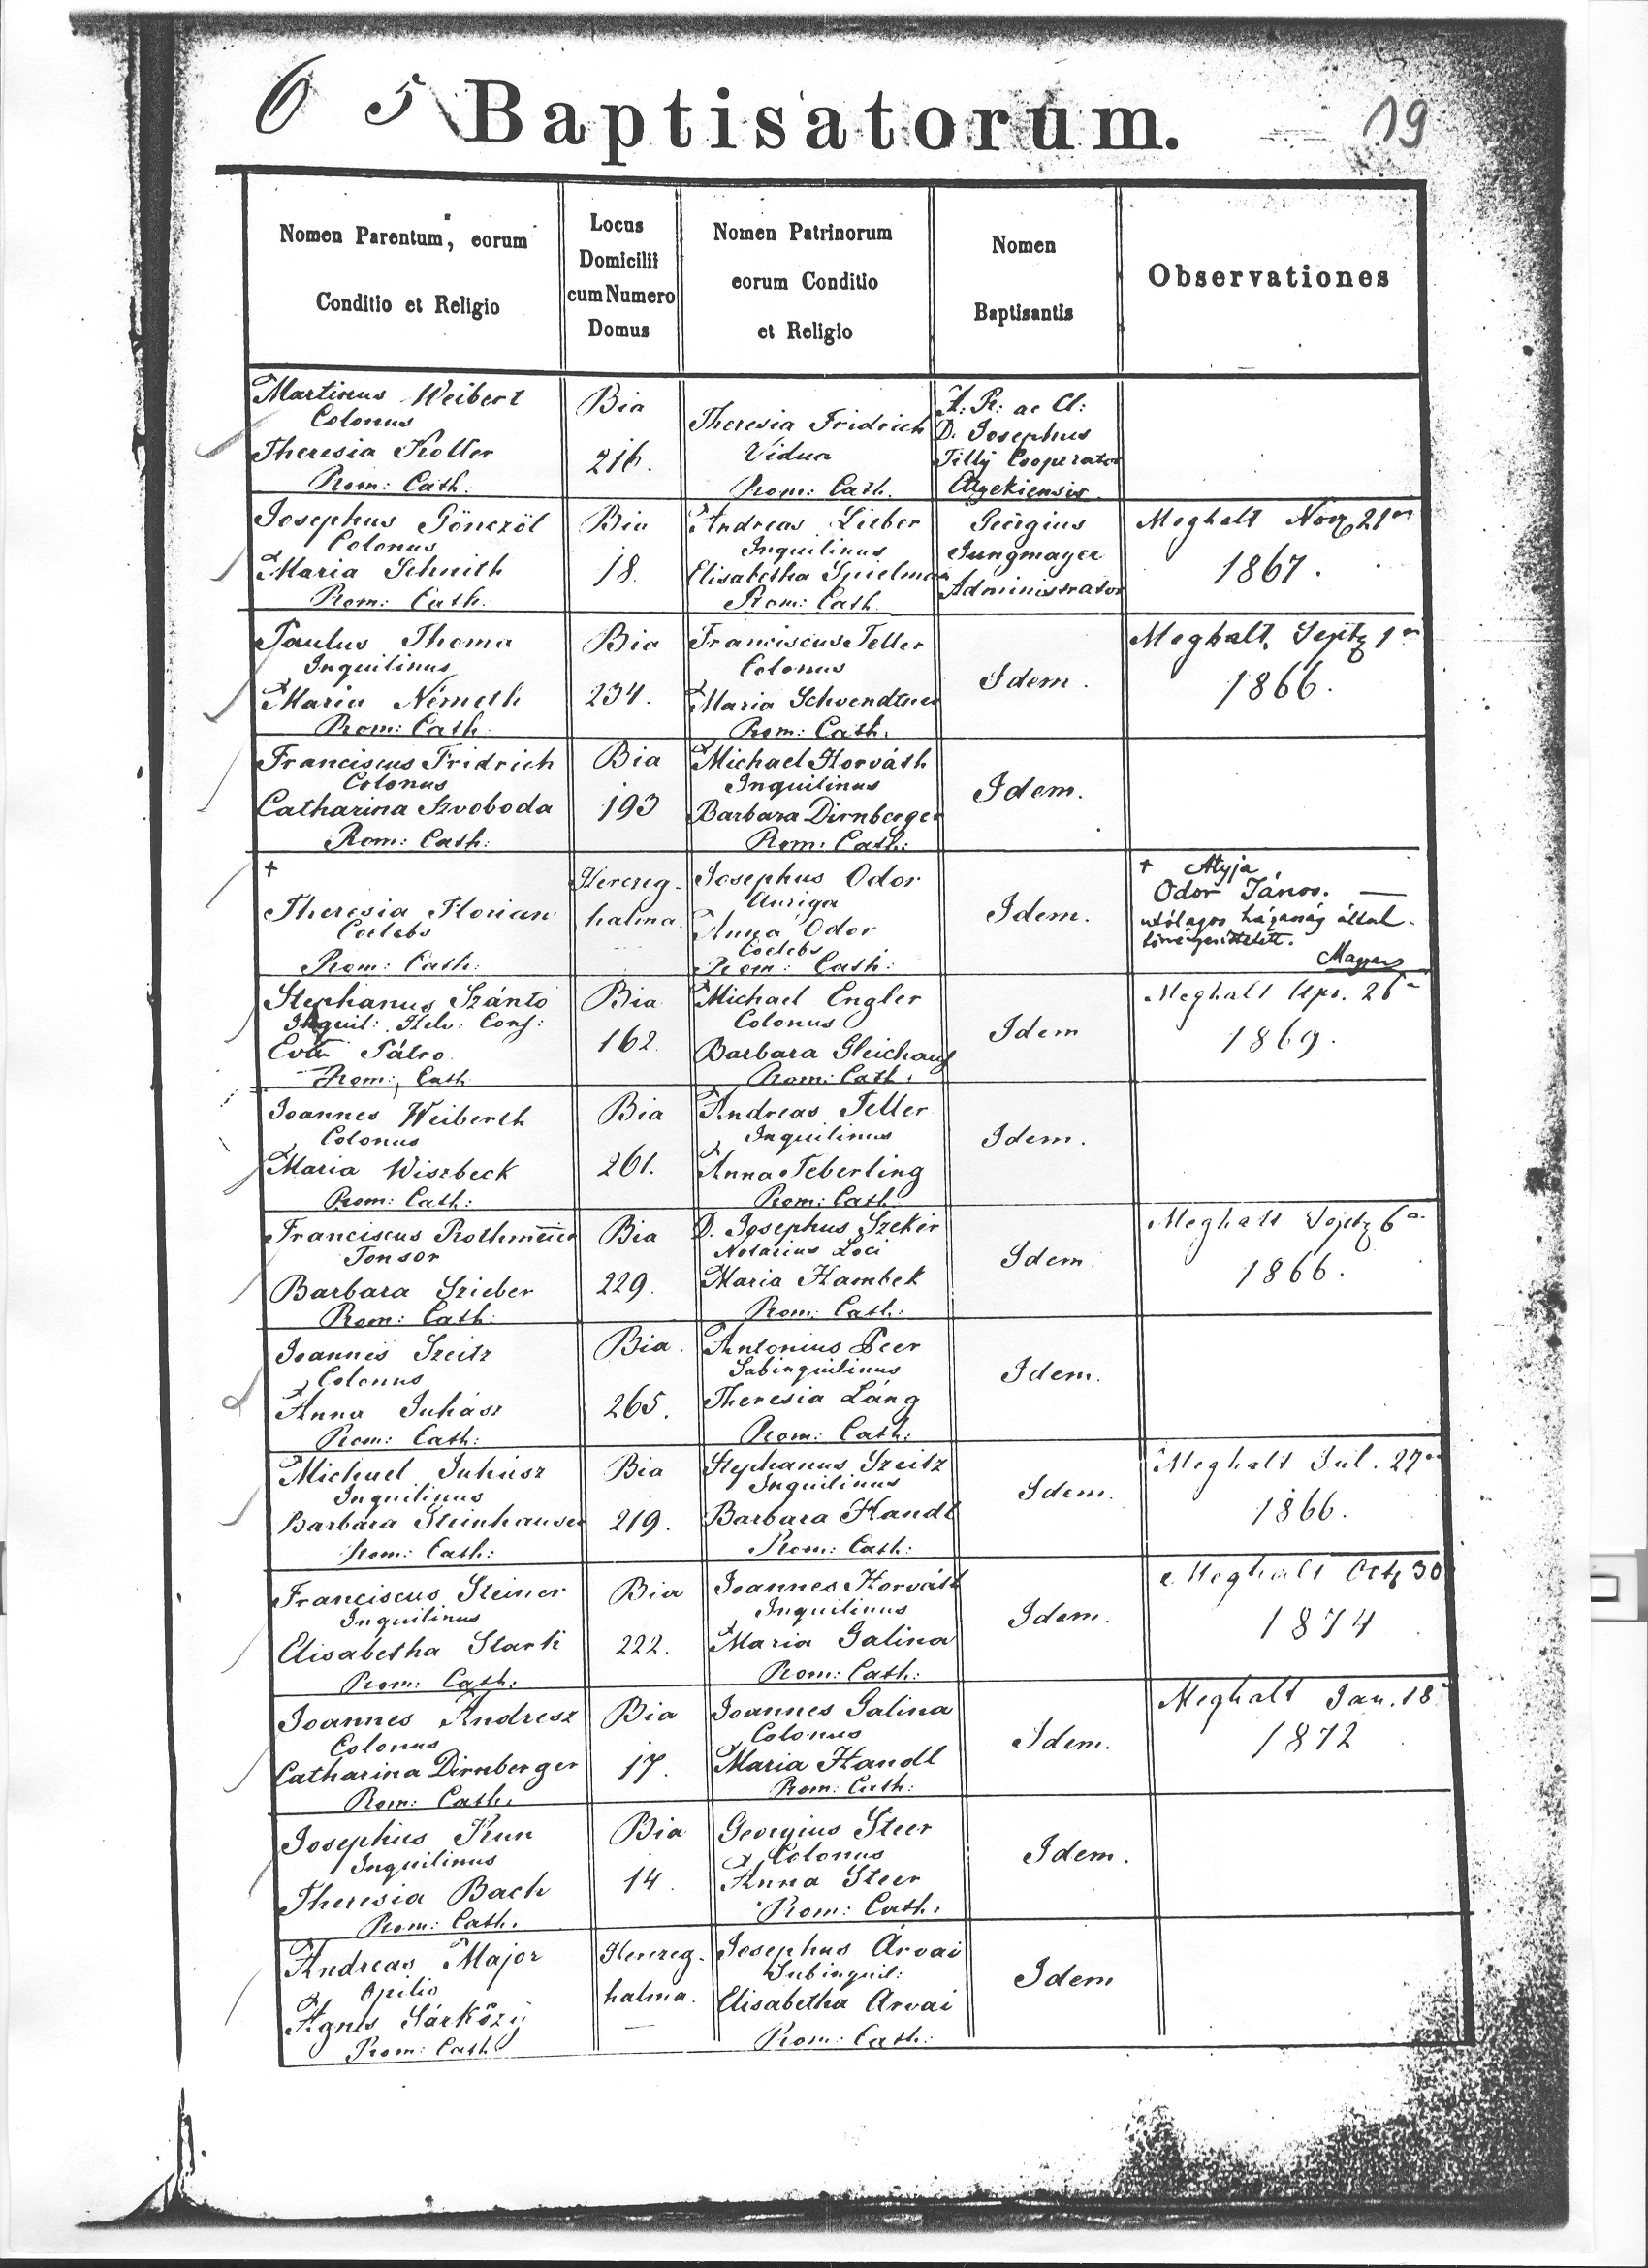 6 5 Baptisatorum. 19
Nomen Parentum, eorum
Conditio et Religio
Locus
Domicilii
cum Numero
Domus
Nomen Patrinorum
eorum Conditio
et Religio
Nomen
Baptisantis
Observationes
Martinus Weibert
Colonus
Theresia Koller
Rom: Cath.
Bia
216.
Theresia Fridrich
Vidua
Rom: Cath.
A. R. ac Cl:
D. Josephus
Tilly Cooperator
Etyekiensis.
Josephus Gönczöl
Colonus
Maria Schmith
Rom: Cath.
Bia
18.
Andreas Lieber
Inquilinus
Elisabetha Spielman
Rom: Cath.
Georgius
Jungmayer
Administrator
Meghalt Nov 21
1867.
Paulus Thoma
Inquilinus
Maria Németh
Rom: Cath.
Bia
234.
Franciscus Teller
Colonus
Maria Schvendtner
Rom: Cath.
Idem.
Meghalt Sept 1
1866.
Franciscus Fridrich
Colonus
Catharina Szvoboda
Rom: Cath:
Bia
193
Michael Horváth
Inquilinus
Barbara Dirnberger
Rom: Cath:
Idem.
+
Theresia Florian
Coelebs
Rom: Cath:
Herczeg-
halma.
Josephus Odor
Auriga
Anna Odor
Coelebs
Rom: Cath:
Idem.
+ Atyja
Odor János. —
utólagos házasság által
törvényesíttetett.
Stephanus Szántó
Inquil: Helv: Conf:
Eva Pátro.
Rom: Cath
Bia
162.
Michael Engler
Colonus
Barbara Gleichauf
Rom: Cath:
Idem
Meghalt Apr. 26
1869.
Joannes Weiberth
Colonus
Maria Wiszbeck
Rom: Cath:
Bia
261.
Andreas Teller
Inquilinus
Anna Teberling
Rom: Cath:
Idem.
Franciscus
Tonsor
Barbara Szieber
Rom: Cath:
Bia
229.
D. Josephus Szekér
Notarius Loci
Maria Hambek
Rom: Cath:
Idem.
Meghalt Sept 6
1866.
Joannes Szeitz
Colonus
Anna Juhász
Rom: Cath:
Bia.
265.
Antonius Peer
Subinquilinus
Theresia Láng
Rom: Cath:
Idem.
Michael Juhász
Inquilinus
Barbara Steinhauser
Rom: Cath:
Bia
219.
Stephanus Szeitz
Inquilinus
Barbara Handl
Rom: Cath:
Idem.
Meghalt Jul. 27
1866.
Franciscus Steiner
Inquilinus
Elisabetha Stark
Rom: Cath:
Bia
222.
Joannes Horváth
Inquilinus
Maria Galina
Rom: Cath:
Idem.
Meghalt Oct 30
1874
Joannes Andresz
Colonus
Catharina Dirnberger
Rom: Cath.
Bia
17.
Joannes Galina
Colonus
Maria Handl
Rom: Cath:
Idem.
Meghalt Jan. 18
1872
Josephus Kun
Inquilinus
Theresia Bach
Rom: Cath.
Bia
14.
Georgius Steer
Colonus
Anna Steer
Rom: Cath:
Idem.
Andreas Major
Opilio
Agnes Sárközy
Rom: Cath
Herczeg-
halma.
Josephus Arvai
Subinquil:
Elisabetha Arvai
Rom: Cath:
Idem